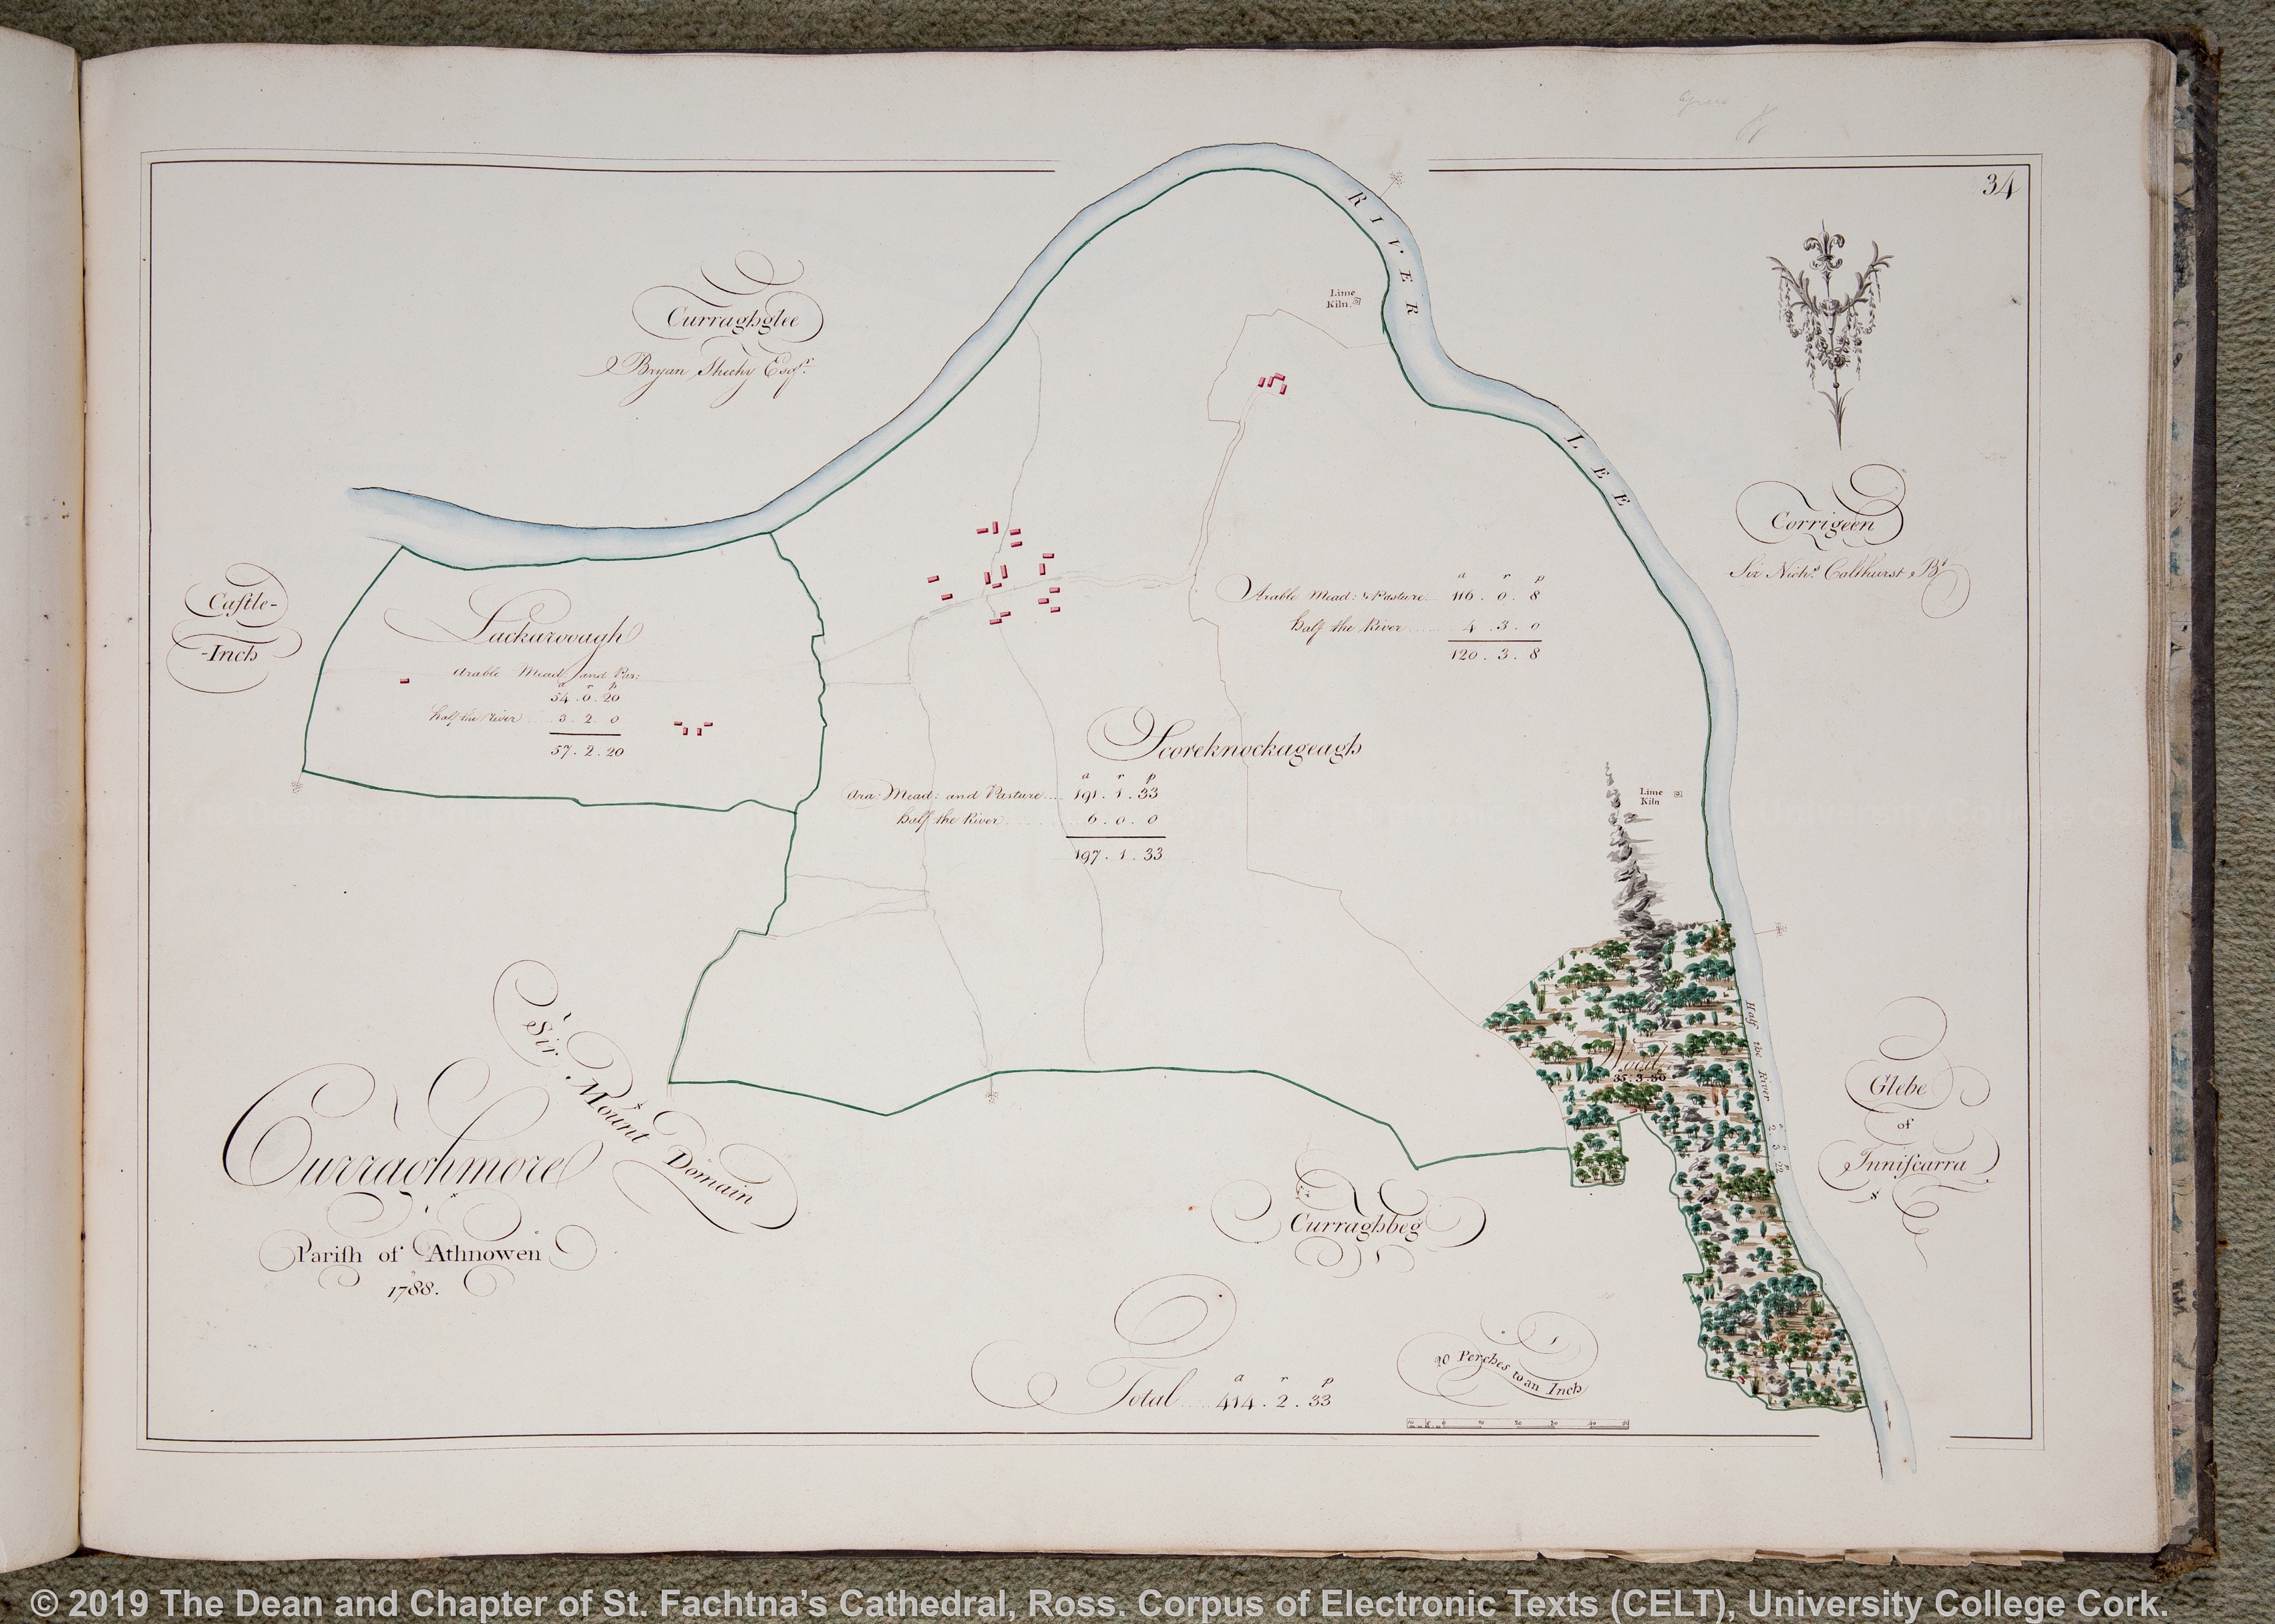 34
RIVER LEE
Lime
Kiln.
Curraghglee
Bryan Sheehy Esqr.
Corrigeen
Sir Nichs. Colthurst Bt
Castle-
-Inch
Lackaroough
Arable Mead and Pas:
a r p
54. 0. 20
half the River 3. 2. 0
57. 2. 20
a r p
Arable Mead: & Pasture 116. 0. 8
half the River 4. 3. 0
120. 3. 8
Scoreknockageagh
a r p
Ara: Mead: and Pasture 191. 1. 33
half the River 6. 0. 0
197. 1. 33
Lime
Kiln
Wood
35. 3. 30
Half the River
a r p
2 3 22
Sir Mount Domain
Curraghmore
Parish of Athnowen
1788.
Glebe
of
Inniscarra
Curraghbeg
a r p
Total 414. 2. 33
20 Perches to an Inch
© 2019 The Dean and Chapter of St. Fachtna’s Cathedral, Ross. Corpus of Electronic Texts (CELT), University College Cork.